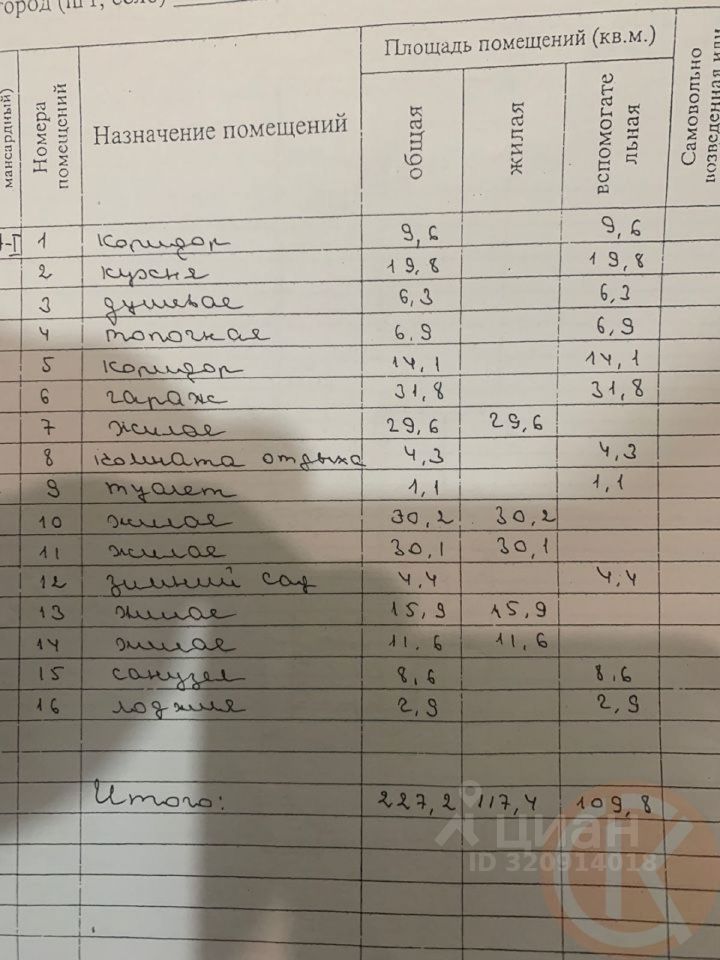 город (пгт, село)
Площадь помещений (кв.м.)
мансардный)
Номера помещений
Назначение помещений
общая
жилая
вспомогате
льная
Самовольно
возведенная или
1 коридор 9,6 9,6
2 кухня 19,8 19,8
3 душевая 6,3 6,3
4 топочная 6,9 6,9
5 коридор 14,1 14,1
6 гараж 31,8 31,8
7 жилая 29,6 29,6
8 комната отдыха 4,3 4,3
9 туалет 1,1 1,1
10 жилая 30,2 30,2
11 жилая 30,1 30,1
12 зимний сад 4,4 4,4
13 жилая 15,9 15,9
14 жилая 11.6 11,6
15 санузел 8,6 8,6
16 лоджия 2,9 2,9
Итого: 227,2 117,4 109,8
циан
ID 320914018